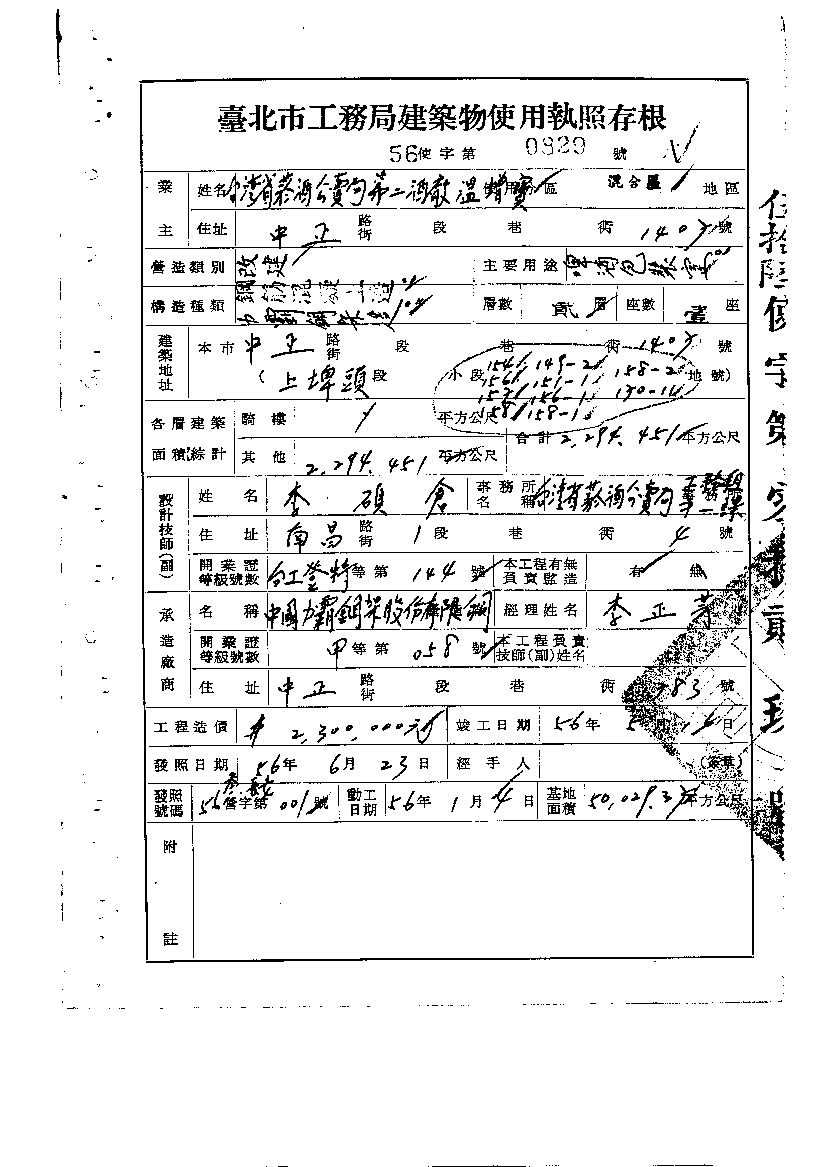 臺北市工務局建築物使用執照存根
56使字第 0829 號
業主 姓名 台灣省菸酒公賣局第二酒廠 溫增實 使用分區 混合區 地區
住址 中正 路街 段 巷 街 140 號
營造類別 改建 主要用途 啤酒包裝室
構造種類 鋼筋混凝土造 力霸鋼架造 層數 貳 層 座數 壹 座
建築地址 本市 中正 路街 段 巷 街 140 號
(上埤頭 段 小段 154 149-2 158-2 地號)
156 151-1 130-14
157 156-1
158 158-1
各層建築面積綜計 騎樓 / 平方公尺 合計 2,294.451 平方公尺
其他 2,294.451 平方公尺
設計技師(副) 姓名 李碩倉 事務所名稱 台灣省菸酒公賣局
住址 南昌 路街 1 段 巷 街 4 號
開業證等級號數 台工登特 等第 144 號 本工程有無負責監造 有 無
承造廠商 名稱 中國力霸鋼架股份有限公司 經理姓名 李正
開業證等級號數 甲 等第 058 號 本工程負責技師(副)姓名
住址 中正 路街 段 巷 街 83 號
工程造價 # 2,300,000元 竣工日期 56年 5月 日
發照日期 56年 6月 23日 經手人 (簽章)
發照號碼 56營字第 001 號 動工日期 56年 1月 4日 基地面積 50,029.3 平方公尺
附註
伍拾陸使字第